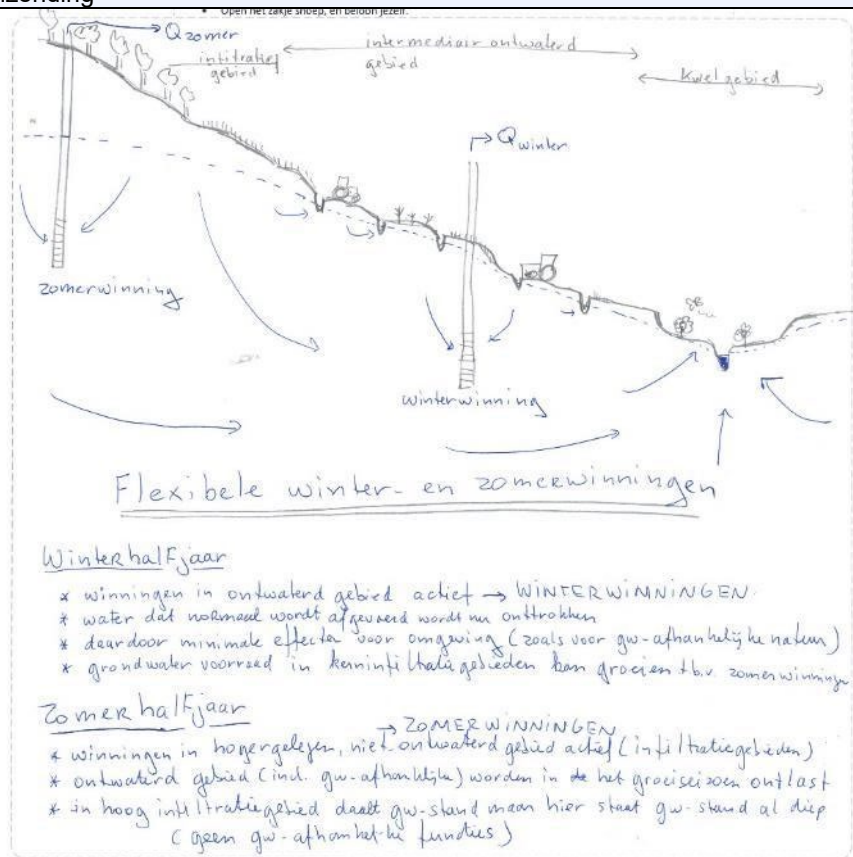 • Open het zakje snoep, en beloon jezelf.
Qzomer
infiltratie
gebied
intermediair ontwaterd
gebied
Kwelgebied
Qwinter
zomerwinning
winterwinning
Flexibele winter- en zomerwinningen
Winterhalfjaar
* winningen in ontwaterd gebied actief → WINTERWINNINGEN
* water dat normaal wordt afgevoerd wordt nu onttrokken
* daardoor minimale effecten voor omgeving (zoals voor gw-afhankelijke natuur)
* grondwater voorraad in keminfiltratiegebieden kan groeien t.b.v. zomerwinningen
Zomerhalfjaar
→ ZOMERWINNINGEN
* winningen in hogergelegen, niet ontwaterd gebied actief (infiltratiegebieden)
* ontwaterd gebied (incl. gw-afhanklijke) worden in het groeiseizoen ontlast
* in hoog infiltratiegebied daalt gw-stand maar hier staat gw-stand al diep
(geen gw-afhankelijke functies)